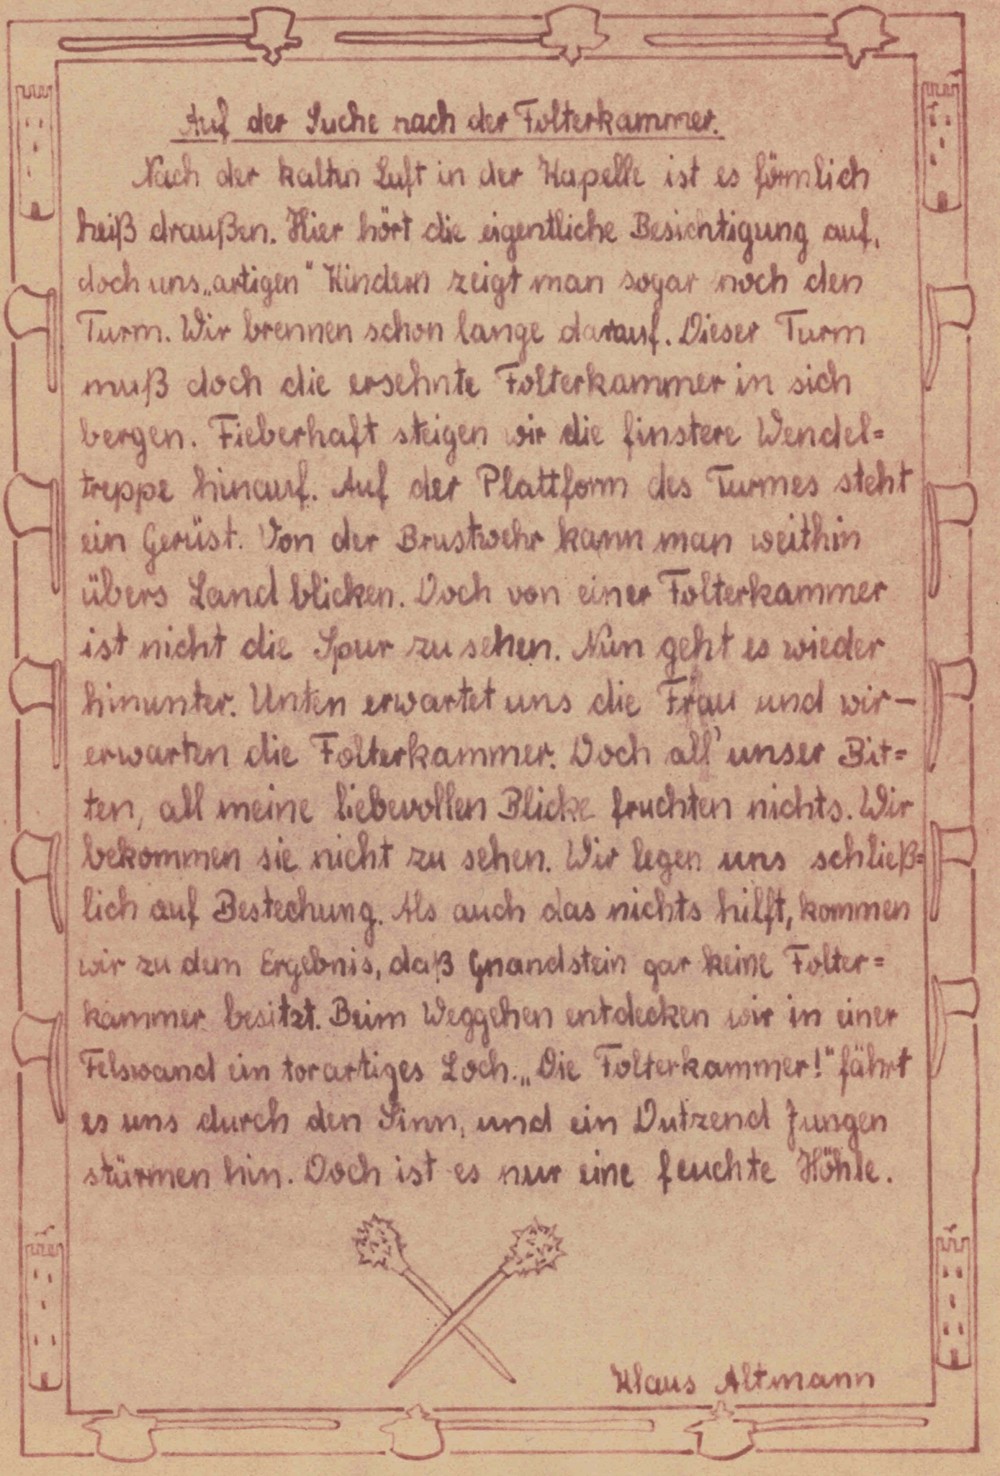 Auf der Suche nach der Folterkammer.
Nach der kalten Luft in der Kapelle ist es förmlich
heiß draußen. Hier hört die eigentliche Besichtigung auf,
doch uns „artigen“ Kindern zeigt man sogar noch den
Turm. Wir brennen schon lange darauf. Dieser Turm
muß doch die ersehnte Folterkammer in sich
bergen. Fieberhaft steigen wir die finstere Wendel=
treppe hinauf. Auf der Plattform des Turmes steht
ein Gerüst. Von der Brustwehr kann man weithin
übers Land blicken. Doch von einer Folterkammer
ist nicht die Spur zu sehen. Nun geht es wieder
hinunter. Unten erwartet uns die Frau und wir –
erwarten die Folterkammer. Doch all' unser Bit=
ten, all meine liebevollen Blicke fruchten nichts. Wir
bekommen sie nicht zu sehen. Wir legen uns schließ=
lich auf Bestechung. Als auch das nichts hilft, kommen
wir zu dem Ergebnis, daß Gnandstein gar keine Folter=
kammer besitzt. Beim Weggehen entdecken wir in einer
Felswand ein torartiges Loch. „Die Folterkammer!“ fährt
es uns durch den Sinn, und ein Dutzend Jungen
stürmen hin. Doch ist es nur eine feuchte Höhle.
Klaus Altmann